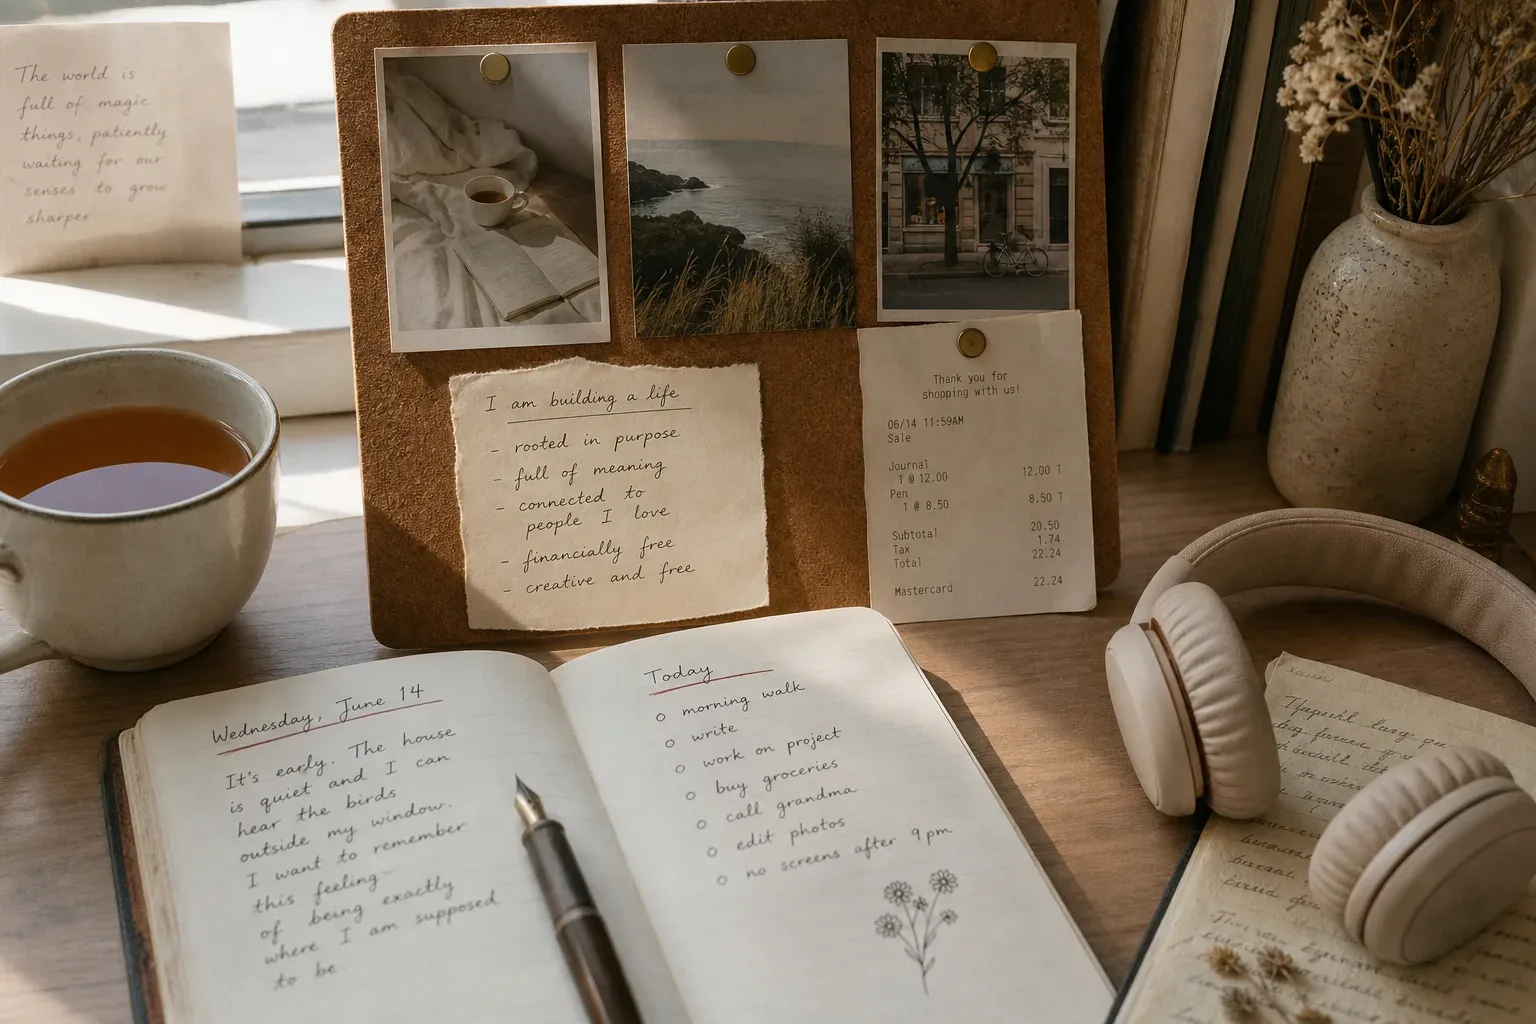 The world is
full of magic
things, patiently
waiting for our
senses to grow
sharper.
I am building a life
- rooted in purpose
- full of meaning
- connected to
people I love
- financially free
- creative and free
Thank you for
shopping with us!
06/14 11:59AM
Sale
Journal
1 @ 12.00 12.00 T
Pen
1 @ 8.50 8.50 T
Subtotal 20.50
Tax 1.74
Total 22.24
Mastercard 22.24
Wednesday, June 14
It's early. The house
is quiet and I can
hear the birds
outside my window.
I want to remember
this feeling-
of being exactly
where I am supposed
to be.
Today
o morning walk
o write
o work on project
o buy groceries
o call grandma
o edit photos
o no screens after 9 pm